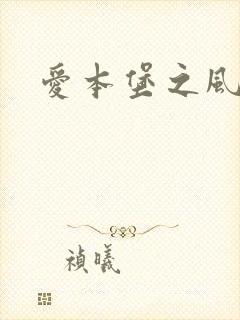 愛本堡之風
禎曦